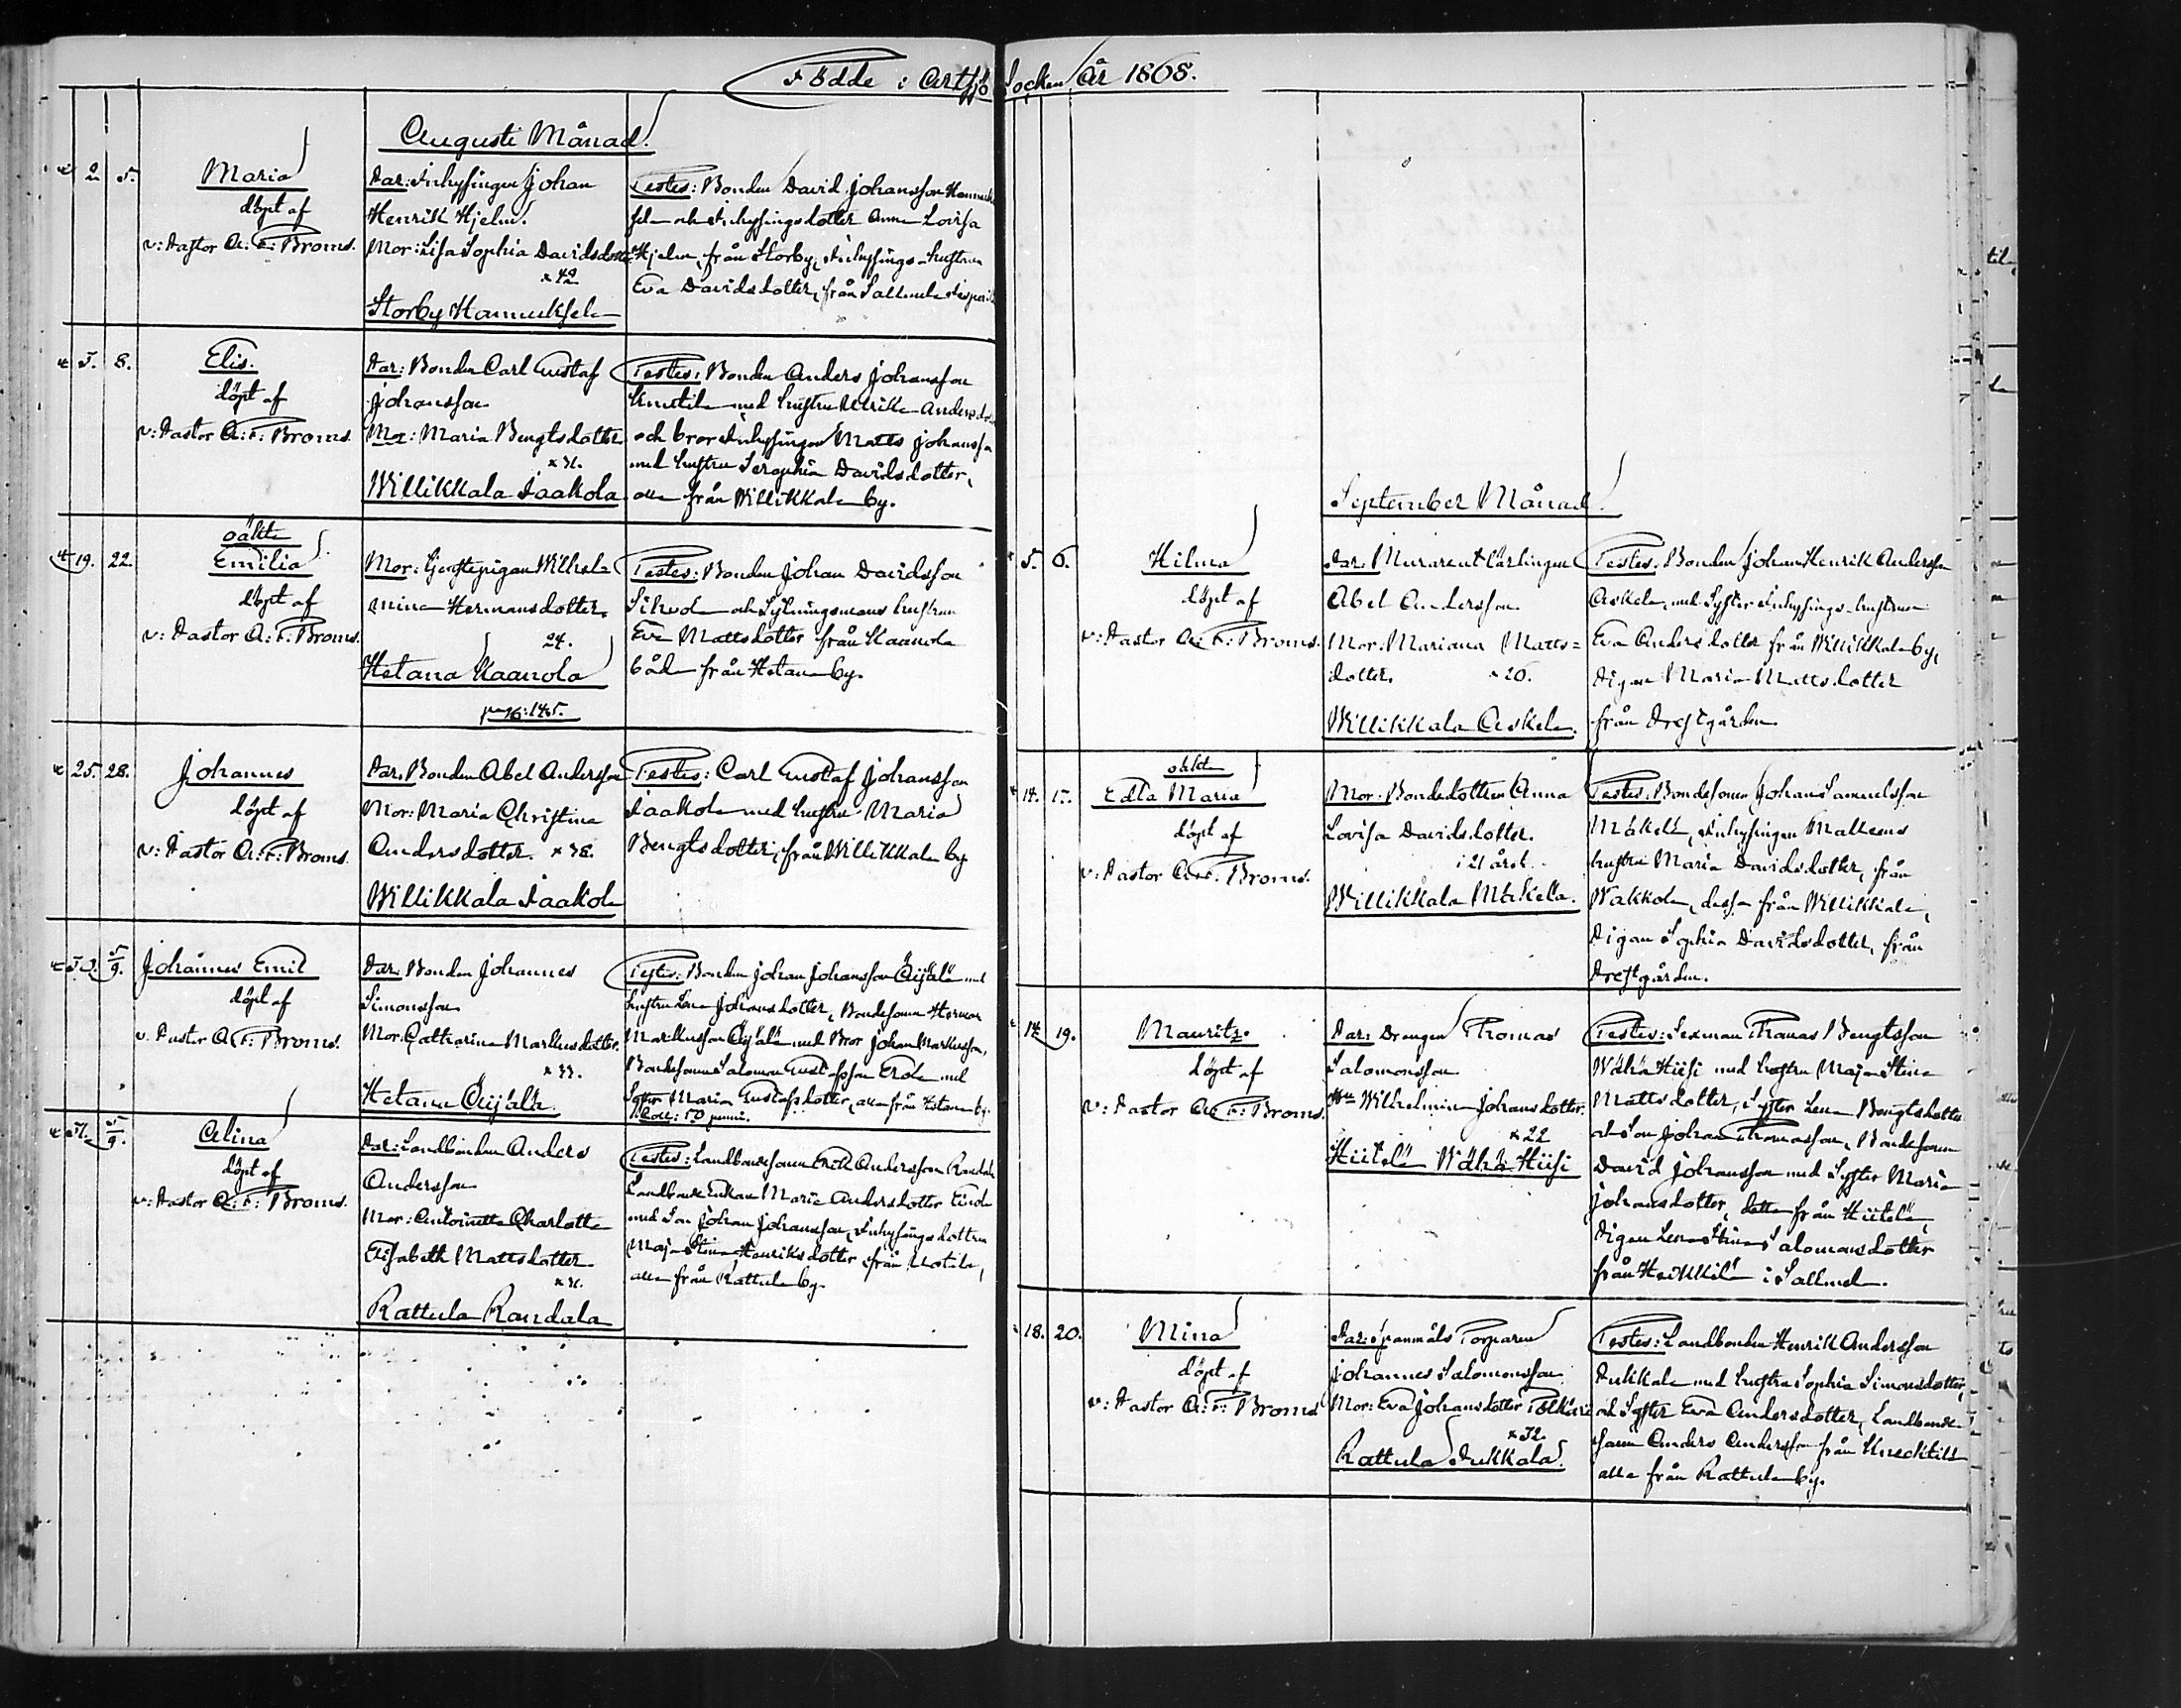 Födde i Artsjö Socken År 1868.
Augusti Månad.
2 5. Maria
döpt af
v: Pastor A: F: Broms.
Far: Inhysingen Johan
Henrik Hjelm.
Mor: Lisa Sophia Davidsdotter
42
Storby Hannuksela
Testes: Bonden David Johansson
och Inhysingsdotter Anna Lovisa
Hjelm, från Storby, Inhysings-hustrun
Eva Davidsdotter, från Sallmela
5. 8. Elis.
döpt af
v: Pastor A: F: Broms.
Far: Bonden Carl Gustaf
Johansson
Mor: Maria Bengtsdotter
Willikkala Jaakola
Testes: Bonden Anders Johansson
Knutila med hustru Ulrika
och bror Inhysingen Matts Johansson
med hustru Seraphia Davidsdotter,
alla från Willikkala by.
19. 22. oäkta
Emilia
döpt af
v: Pastor A: F: Broms.
Mor: Gerstepigan Wilhel-
mina Hermansdotter.
24.
Hetana Kaanola
Testes: Bonden Johan Davidsson
och hustrun
Eva Mattsdotter från Kaanola
båda från Hetana by.
25. 28. Johannes
döpt af
v: Pastor A: F: Broms.
Far: Bonden Abel Andersson
Mor: Maria Christina
Andersdotter. 38.
Willikkala Jaakola
Testes: Carl Gustaf Johansson
Jaakola med hustru Maria
Bengtsdotter, från Willikkala by.
30. 5/9. Johannes Emil
döpt af
v. Pastor A: F: Broms.
Far: Bonden Johannes
Simonsson
Mor: Catharina Markusdotter.
33.
Hetana Öijälä
Testes: Bonden Johan Johansson Öijälä med
hustru Lena Johansdotter, Bondesonen Herman
Markusson Öijälä med Bror Johan Markusson,
Bondesonen Salomon Gustafsson Erola med
Syster Maria Gustafsdotter, alla från Hetana by.
Coll: 50 penni.
31. 5/9. Alina
döpt af
v: Pastor A: F: Broms.
Far: Landbonden Anders
Andersson
Mor: Antoinetta Charlotta
Elisabeth Mattsdotter
Rattula Randala
Testes: Landbondesonen Erik Andersson Randala
Landbonde Enkan Maria Andersdotter
med Son Johan Johansson, Inhysings dottren
Maja Stina Henriksdotter från
alla från Rattula by.
September Månad.
5. 6. Hilma
döpt af
v: Pastor A: F: Broms.
Far: Murare Lärlingen
Abel Andersson
Mor: Mariana Matts=
dotter. 26.
Willikkala Askela.
Testes: Bonden Johan Henrik Andersson
Askela, med Syster Inhysings-hustrun
Eva Andersdotter från Willikkala by,
Pigan Maria Mattsdotter
från Prestgården
14. 15. oäkta
Edla Maria
döpt af
v: Pastor A: F: Broms.
Mor: Bondedottren Anna
Lovisa Davidsdotter.
i 21 året.
Willikkala Mäkelä.
Testes: Bondesonen Johan Samuelsson
Mäkelä, Inhysingen
hustru Maria Davidsdotter, från
Wakkola, dessa från Willikkala,
Pigan Sophia Davidsdotter, från
Prestgården.
14. 19. Mauritz.
döpt af
v: Pastor A: F: Broms.
Far: Drengen Thomas
Salomonsson
Mor Wilhelmina Johansdotter.
22
Hiitelä Wähä Hiisi
Testes: Sexman Thomas Bengtsson
Wähä Hiisi med hustru Maja Stina
Mattsdotter, Syster Lena Bengtsdotter
och Son Johan Thomasson, Bondesonen
David Johansson med Syster Maria
Johansdotter, dessa från Hiitelä,
Pigan Lena Stina Salomonsdotter
från Heikkilä i Sallmela.
18. 20. Mina
döpt af
v: Pastor A: F: Broms
Far: Spanmåls Torparen
Johannes Salomonsson
Mor: Eva Johansdotter
32.
Rattula Pukkala.
Testes: Landbonden Henrik Andersson
Pukkala med hustru Sophia Simonsdotter,
och Syster Eva Andersdotter, Landbonde-
sonen Anders Andersson från Knecktilä
alla från Rattula by.